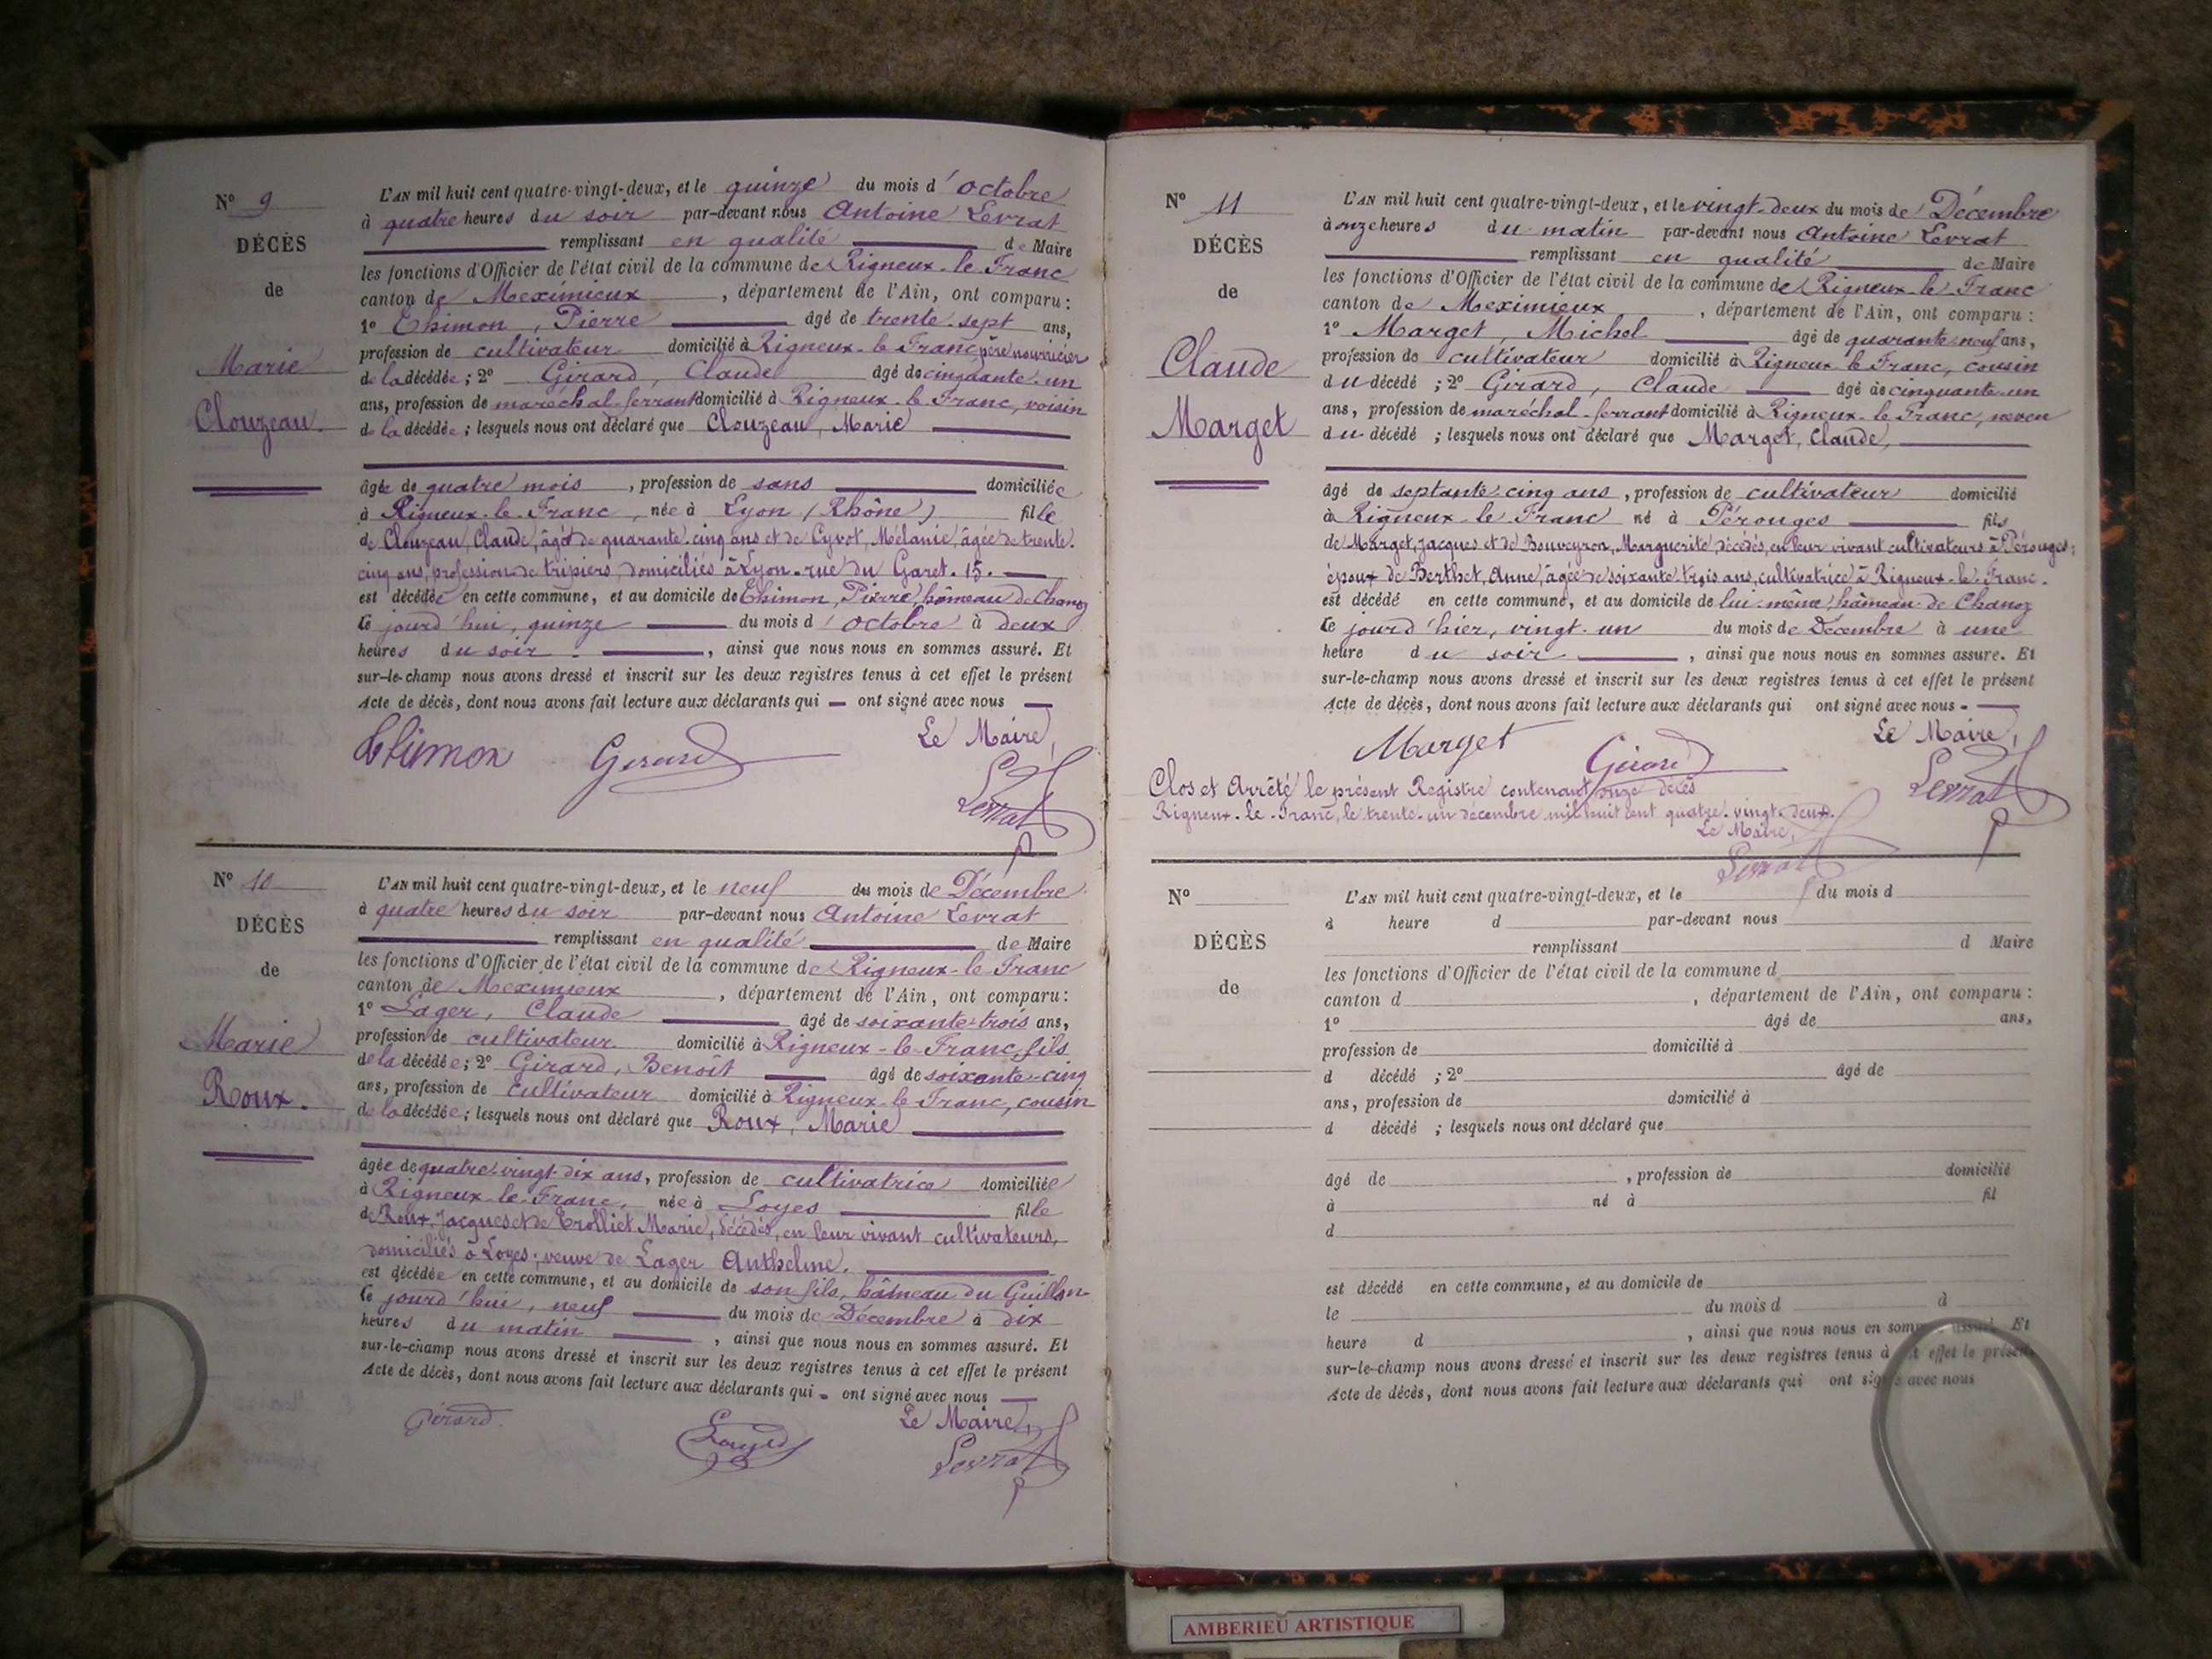 N° 9
DÉCÈS
de
Marie
Clouzeau.
L'AN mil huit cent quatre-vingt-deux, et le quinze du mois d'octobre
à quatre heures du soir par-devant nous Antoine Levrat
remplissant en qualité de Maire
les fonctions d'Officier de l'état civil de la commune de Rigneux-le-Franc
canton de Meximieux, département de l'Ain, ont comparu:
1° Thimon, Pierre âgé de trente-sept ans,
profession de cultivateur domicilié à Rigneux-le-Franc père nourricier
de la décédée; 2° Girard, Claude âgé de cinquante-un
ans, profession de maréchal-ferrant domicilié à Rigneux-le-Franc, voisin
de la décédée; lesquels nous ont déclaré que Clouzeau, Marie
âgée de quatre mois, profession de sans domiciliée
à Rigneux-le-Franc, née à Lyon (Rhône) fille
de Clouzeau, Claude, âgé de quarante-cinq ans et de Cyvot, Mélanie, âgée de trente-
cinq ans, profession de tripiers, domiciliés à Lyon-rue du Garet. 15.
est décédée en cette commune, et au domicile de Thimon, Pierre, hâmeau de Chanoz
le jourd'hui, quinze du mois d'octobre à deux
heures du soir, ainsi que nous nous en sommes assuré. Et
sur-le-champ nous avons dressé et inscrit sur les deux registres tenus à cet effet le présent
Acte de décès, dont nous avons fait lecture aux déclarants qui ont signé avec nous
Le Maire,
Thimon Girard
Levrat
N° 10
DÉCÈS
de
Marie
Roux.
L'AN mil huit cent quatre-vingt-deux, et le neuf du mois de Décembre
à quatre heures du soir par-devant nous Antoine Levrat
remplissant en qualité de Maire
les fonctions d'Officier de l'état civil de la commune de Rigneux-le-Franc
canton de Meximieux, département de l'Ain, ont comparu:
1° Lager, Claude âgé de soixante-trois ans,
profession de cultivateur domicilié à Rigneux-le-Franc, fils
de la décédée; 2° Girard, Benoît âgé de soixante-cinq
ans, profession de cultivateur domicilié à Rigneux-le-Franc, cousin
de la décédée; lesquels nous ont déclaré que Roux, Marie
âgée de quatre-vingt-dix ans, profession de cultivatrice domiciliée
à Rigneux-le-Franc, née à Loyes fille
de Roux, Jacques et de Trolliet Marie, décédés, en leur vivant cultivateurs,
domiciliés à Loyes; veuve de Lager Anthelme.
est décédée en cette commune, et au domicile de son fils, hâmeau du Guillon
le jourd'hui, neuf du mois de Décembre à dix
heures du matin, ainsi que nous nous en sommes assuré. Et
sur-le-champ nous avons dressé et inscrit sur les deux registres tenus à cet effet le présent
Acte de décès, dont nous avons fait lecture aux déclarants qui ont signé avec nous
Le Maire,
Gérard.
Levrat
N° 11
DÉCÈS
de
Claude
Marget
L'AN mil huit cent quatre-vingt-deux, et le vingt-deux du mois de Décembre
à onze heures du matin par-devant nous Antoine Levrat
remplissant en qualité de Maire
les fonctions d'Officier de l'état civil de la commune de Rigneux-le-Franc
canton de Meximieux, département de l'Ain, ont comparu:
1° Marget, Michel âgé de quarante-neuf ans,
profession de cultivateur domicilié à Rigneux le Franc, cousin
du décédé; 2° Girard, Claude âgé de cinquante-un
ans, profession de maréchal-ferrant domicilié à Rigneux-le-Franc, neveu
du décédé; lesquels nous ont déclaré que Marget, Claude,
âgé de septante-cinq ans, profession de cultivateur domicilié
à Rigneux-le-Franc né à Pérouges fils
de Marget, Jacques et de Bouveyron, Marguerite décédés, en leur vivant cultivateurs à Pérouges;
époux de Berthet, Anne, âgée de soixante-trois ans, cultivatrice à Rigneux-le-Franc.
est décédé en cette commune, et au domicile de lui-même, hâmeau de Chanoz
le jourd'hier, vingt-un du mois de Décembre à une
heure du soir, ainsi que nous nous en sommes assuré. Et
sur-le-champ nous avons dressé et inscrit sur les deux registres tenus à cet effet le présent
Acte de décès, dont nous avons fait lecture aux déclarants qui ont signé avec nous
Le Maire,
Marget Girard
Levrat
Clos et Arrêté le présent Registre contenant onze décès
Rigneux-le-Franc, le trente-un décembre mil huit cent quatre-vingt-deux.
Le Maire,
Levrat
N°
DÉCÈS
de
L'AN mil huit cent quatre-vingt-deux, et le du mois d
à heure d par-devant nous
remplissant d Maire
les fonctions d'Officier de l'état civil de la commune d
canton d, département de l'Ain, ont comparu:
1° âgé de ans,
profession de domicilié à
d décédé; 2° âgé de
ans, profession de domicilié à
d décédé; lesquels nous ont déclaré que
âgé de, profession de domicilié
à né à fil
d
est décédé en cette commune, et au domicile de
le du mois d à
heure d, ainsi que nous nous en sommes assuré. Et
sur-le-champ nous avons dressé et inscrit sur les deux registres tenus à cet effet le présent
Acte de décès, dont nous avons fait lecture aux déclarants qui ont signé avec nous
AMBERIEU ARTISTIQUE